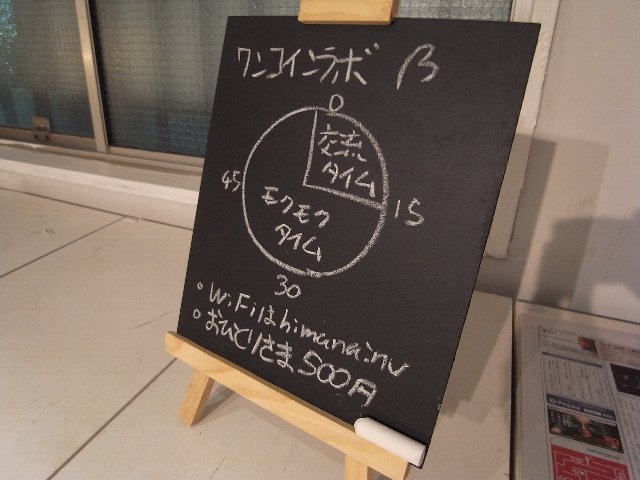 ワンコインラボ β
0
交流
タイム
45
15
モクモク
タイム
30
WiFiはhimana.nv
おひとりさま500円